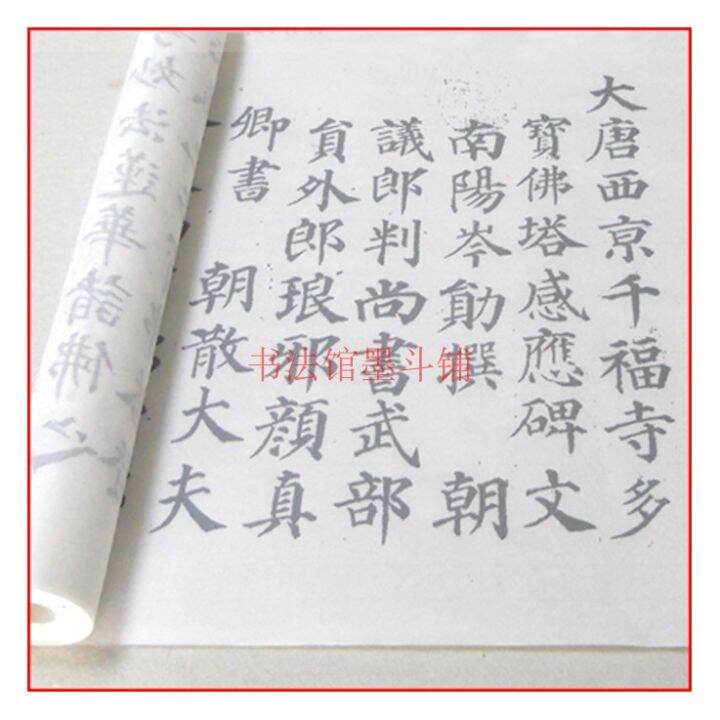 大唐西京千福寺多
寶佛塔感應碑文
南陽岑勛撰 朝
議郎判尚書武部
負外郎琅邪顔真
卿書 朝散大夫
妙法蓮華諸佛之
书法馆墨斗铺